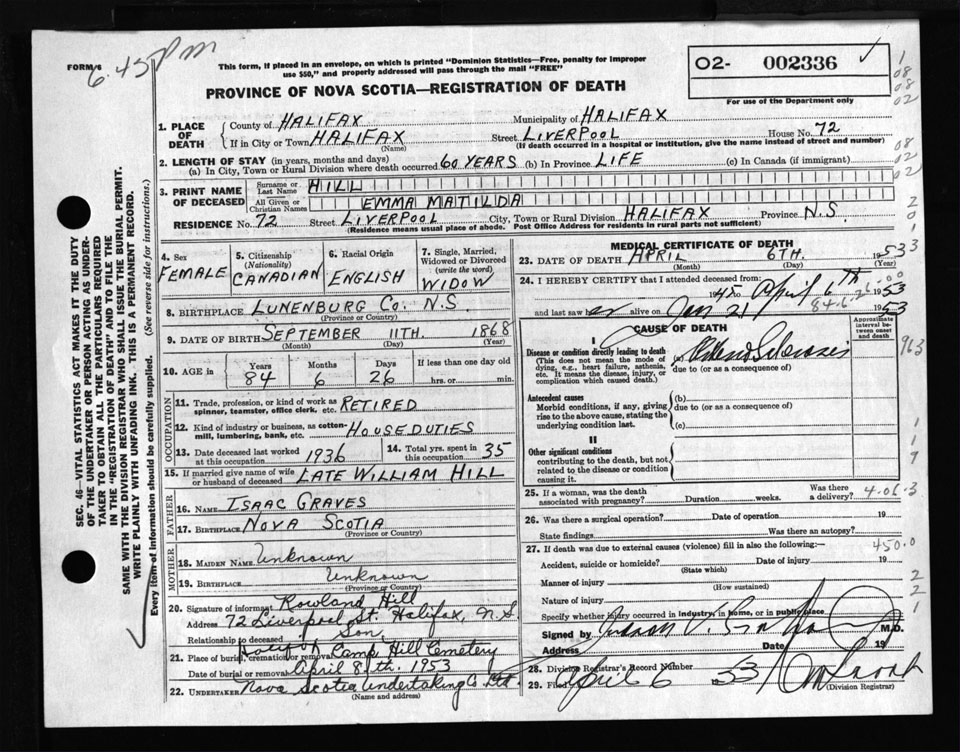 FORM 6
6.45 pm
This form, if placed in an envelope, on which is printed "Dominion Statistics—Free, penalty for improper
use $50," and properly addressed will pass through the mail "FREE"
02- 002336
For use of the Department only
PROVINCE OF NOVA SCOTIA—REGISTRATION OF DEATH
1. PLACE OF DEATH
County of HALIFAX Municipality of HALIFAX
If in City or Town HALIFAX Street LIVERPOOL House No. 72
(Name) (If death occurred in a hospital or institution, give the name instead of street and number)
2. LENGTH OF STAY (in years, months and days)
(a) In City, Town or Rural Division where death occurred 60 YEARS (b) In Province LIFE (c) In Canada (if immigrant)
3. PRINT NAME OF DECEASED
Surname or Last Name HILL
All Given or Christian Names EMMA MATILDA
RESIDENCE No. 72 Street LIVERPOOL City, Town or Rural Division HALIFAX Province N.S.
(Residence means usual place of abode. Post Office Address for residents in rural parts not sufficient)
4. Sex FEMALE
5. Citizenship (Nationality) CANADIAN
6. Racial Origin ENGLISH
7. Single, Married, Widowed or Divorced (write the word) WIDOW
8. BIRTHPLACE LUNENBURG CO. N.S
(Province or Country)
9. DATE OF BIRTH SEPTEMBER 11TH. 1868
(Month) (Day) (Year)
10. AGE in Years 84 Months 6 Days 26 If less than one day old hrs. or min.
OCCUPATION
11. Trade, profession, or kind of work as spinner, teamster, office clerk, etc. RETIRED
12. Kind of industry or business, as cotton-mill, lumbering, bank, etc. HOUSE DUTIES
13. Date deceased last worked at this occupation 1936
14. Total yrs. spent in this occupation 35
15. If married give name of wife or husband of deceased LATE WILLIAM HILL
FATHER
16. NAME ISAAC GRAVES
17. BIRTHPLACE NOVA SCOTIA
(Province or Country)
MOTHER
18. MAIDEN NAME Unknown
19. BIRTHPLACE Unknown
(Province or Country)
20. Signature of informant Rowland Hill
Address 72 Liverpool St. Halifax, N.S.
Relationship to deceased Son,
21. Place of burial, cremation or removal Camp Hill Cemetery
Date of burial or removal April 8th. 1953
22. UNDERTAKER Nova Scotia Undertaking Co. Ltd.
(Name and address)
MEDICAL CERTIFICATE OF DEATH
23. DATE OF DEATH APRIL 6TH. 1953
(Month) (Day) (Year)
24. I HEREBY CERTIFY that I attended deceased from:
1945 to April 6th 1953
and last saw er alive on Jan 21 1953
84.6.26
CAUSE OF DEATH
Approximate interval between onset and death
I
Disease or condition directly leading to death
(This does not mean the mode of dying, e.g., heart failure, asthenia, etc. It means the disease, injury, or complication which caused death.)
(a)
due to (or as a consequence of)
Antecedent causes
Morbid conditions, if any, giving rise to the above cause, stating the underlying condition last.
(b)
due to (or as a consequence of)
(c)
II
Other significant conditions
contributing to the death, but not related to the disease or condition causing it.
25. If a woman, was the death associated with pregnancy? Duration weeks. Was there a delivery?
26. Was there a surgical operation? Date of operation 19
State findings Was there an autopsy?
27. If death was due to external causes (violence) fill in also the following:—
450.0
Accident, suicide or homicide? Date of injury 19
(State which)
Manner of injury
(How sustained)
Nature of injury
Specify whether injury occurred in industry, in home, or in public place
Signed by M.D.
Address Date 19
28. Division Registrar's Record Number
29. Filed April 6 53
(Division Registrar)
SEC. 46—VITAL STATISTICS ACT MAKES IT THE DUTY
OF THE UNDERTAKER OR PERSON ACTING AS UNDER-
TAKER TO OBTAIN ALL THE PARTICULARS REQUIRED
IN THE "REGISTRATION OF DEATH" AND TO FILE THE
SAME WITH THE DIVISION REGISTRAR WHO SHALL ISSUE THE BURIAL PERMIT.
WRITE PLAINLY WITH UNFADING INK. THIS IS A PERMANENT RECORD.
Every item of information should be carefully supplied. (See reverse side for instructions.)